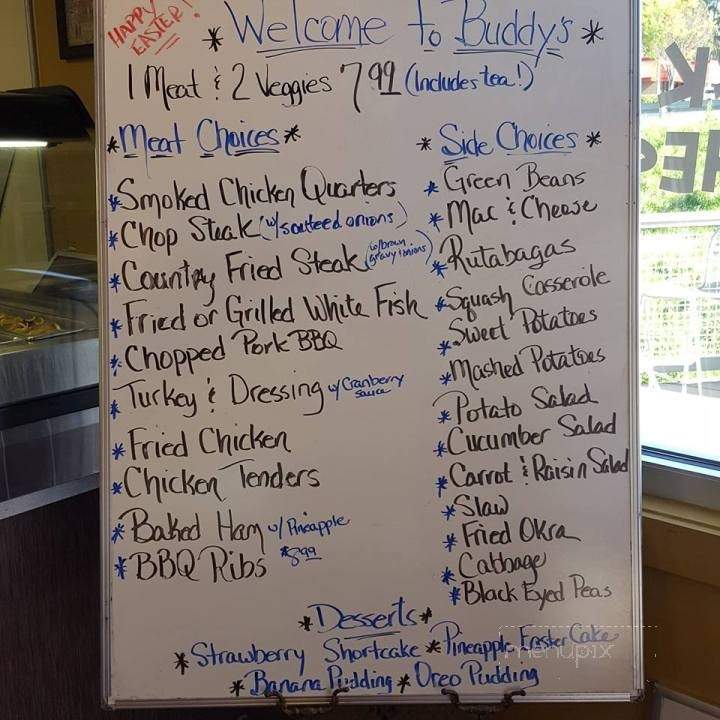 HAPPY EASTER!
* Welcome to Buddys *
1 Meat & 2 Veggies 7.99 (Includes tea!)
*Meat Choices*
*Smoked Chicken Quarters
*Chop Steak (w/sauteed onions)
*Country Fried Steak (w/brown gravy & onions)
*Fried or Grilled White Fish
*Chopped Pork BBQ
*Turkey & Dressing w/Cranberry sauce
*Fried Chicken
*Chicken Tenders
*Baked Ham w/ Pineapple
*BBQ Ribs $8.99
* Side Choices *
*Green Beans
*Mac & Cheese
*Rutabagas
*Squash Casserole
*Sweet Potatoes
*Mashed Potatoes
*Potato Salad
*Cucumber Salad
*Carrot & Raisin Salad
*Slaw
*Fried Okra
*Cabbage
*Black Eyed Peas
*Desserts*
*Strawberry Shortcake *Pineapple Easter Cake
*Banana Pudding *Oreo Pudding
menupix